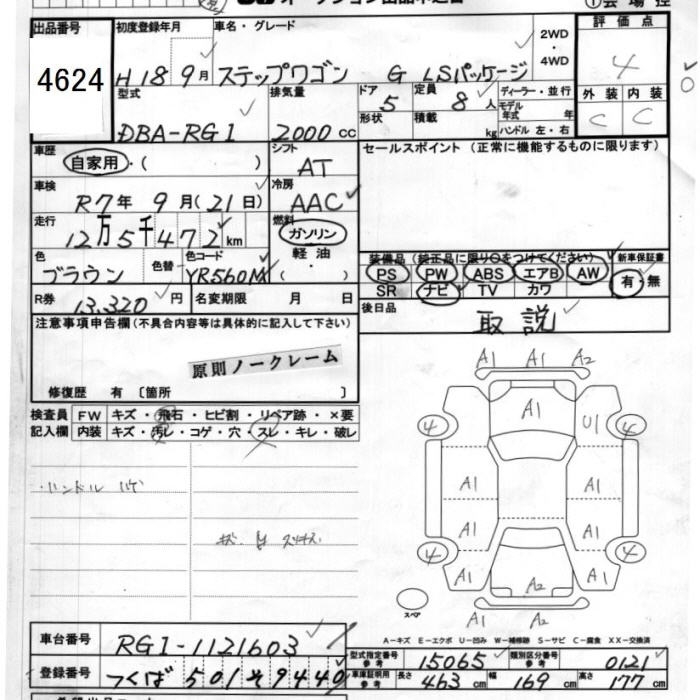 オークション出品申込書 ①会場控
出品番号 初度登録年月 車名・グレード 2WD・4WD 評価点
4624 H18 9月 ステップワゴン G LSパッケージ 4
型式 排気量 ドア 定員 ディーラー・並行 外装 内装
5 8人 モデル年式 年 C C
形状 積載 kg ハンドル 左・右
DBA-RG1 2000cc
車歴 シフト セールスポイント (正常に機能するものに限ります)
自家用・( ) AT
車検 冷房
R7年 9月(21日) AAC
走行 燃料
12万5千472km ガソリン
軽油
色 色替 色コード 装備品 (純正品に限り○をつけてください) 新車保証書
ブラウン YR560M ( ) PS PW ABS エアB AW 有・無
SR ナビ TV カワ
R券 13,320円 名変期限 月 日 後日品
取説
注意事項申告欄(不具合内容等は具体的に記入して下さい)
原則ノークレーム
修復歴 有 〔箇所 〕
検査員 FW キズ・飛石・ヒビ割・リペア跡・×要
記入欄 内装 キズ・汚レ・コゲ・穴・スレ・キレ・破レ
ハンドル ハゲ
A1 A1 A2
A1 U1
4 4
A1 A1
A1 A1
4 4
A1 A2 A1
A1
スペア
A-キズ E-エクボ U-凹み W-補修跡 S-サビ C-腐食 XX-交換済
車台番号 RG1-1121603
型式指定番号参考 15065 類別区分番号参考 0121
登録番号 つくば 501 そ 9440
車庫証明用参考 長さ 463cm 幅 169cm 高さ 177cm